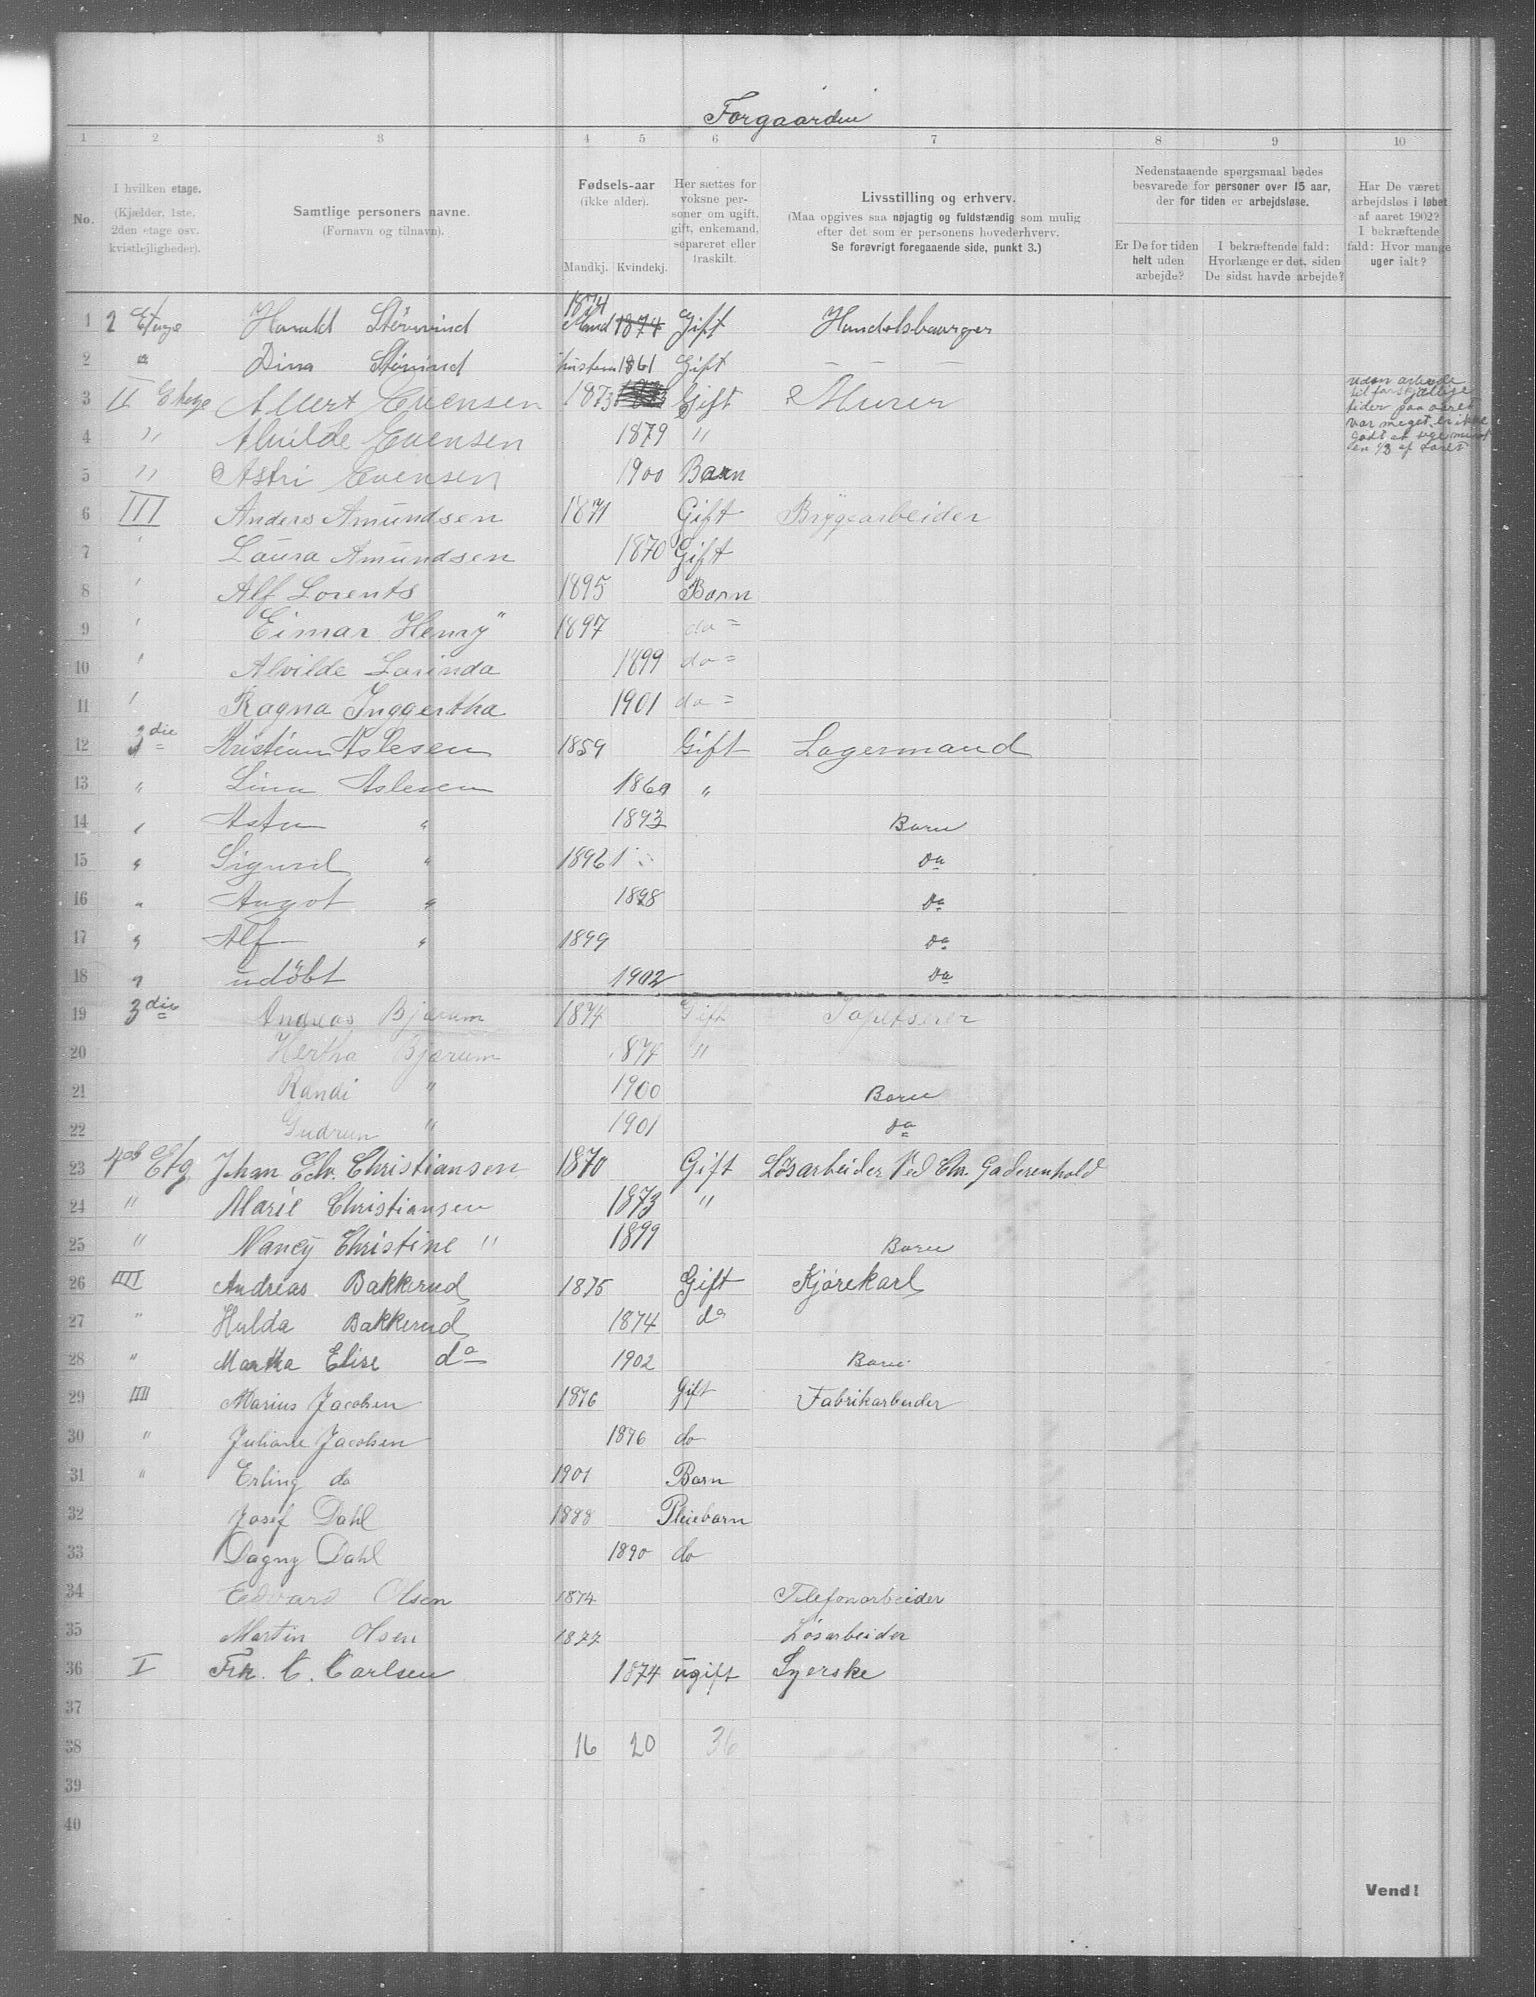 Forgaarden
1 2 3 4 5 6 7 8 9 10
No.
I hvilken etage.
(Kjælder, 1ste,
2den etage osv.
kvistlejligheder).
Samtlige personers navne.
(Fornavn og tilnavn).
Fødsels-aar
(ikke alder).
Mandkj. Kvindekj.
Her sættes for
voksne per-
soner om ugift,
gift, enkemand,
separeret eller
fraskilt.
Livsstilling og erhverv.
(Maa opgives saa nøjagtig og fuldstændig som mulig
efter det som er personens hovederhverv.
Se forøvrigt foregaaende side, punkt 3.)
Nedenstaaende spørgsmaal bedes
besvarede for personer over 15 aar,
der for tiden er arbejdsløse.
Er De for tiden
helt uden
arbejde?
I bekræftende fald:
Hvorlænge er det, siden
De sidst havde arbejde?
Har De været
arbejdsløs i løbet
af aaret 1902?
I bekræftende
fald: Hvor mange
uger ialt?
1 2 Etage Harald Störvind 1874 Mand 1874 Gift Handelsbaarger
2 " Dina Störvind hustru 1861 Gift
3 II Etage Albert Evensen 1873 Gift Murer
uden arbeide
til forskjellige
tider paa aaret
var meget er ikke
godt at sige mindst
en 1/3 af aaret
4 " Alvilde Evensen 1879 "
5 " Astri Evensen 1900 Barn
6 III Anders Amundsen 1871 Gift Bryggearbeider
7 ' Laura Amundsen 1870 Gift
8 ' Alf Lorents 1895 Barn
9 ' Eimar Henry" 1897 do =
10 ' Alvilde Lorinda 1899 do =
11 ' Ragna Inggertha 1901 do =
12 3die Kristian Aslesen 1859 Gift Lagermand
13 " Lina Aslesen 1860 "
14 " Asta " 1893 Barn
15 " Sigurd " 1896 do
16 " Aagot " 1898 do
17 " Alf " 1899 do
18 " udöbt 1902 do
19 3die Andreas Bjærum 1874 Gift Tapetserer
20 Hertha Bjærum 1874 "
21 Randi " 1900 Barn
22 Gudrun " 1901 do
23 4de Etg Johan Edv. Christiansen 1870 Gift Løsarbeider Ved Chr. Gaderenhold
24 " Marie Christiansen 1873 "
25 " Nancy Christine " 1899 Barn
26 IIII Andreas Bakkerud 1875 Gift Kjørekarl
27 " Hulda Bakkerud 1874 do
28 " Martha Elise do 1902 Barn
29 IIII Marius Jacobsen 1876 Gift Fabrikarbeider
30 " Juliane Jacobsen 1876 do
31 " Erling do 1901 Barn
32 Josef Dahl 1888 Pleiebarn
33 Dagny Dahl 1890 do
34 Edvard Olsen 1874 Telefonarbeider
35 Martin Olsen 1877 Løsarbeider
36 I Frk. C. Carlsen 1874 ugift Syerske
37
38 16 20 36
39
40
Vend!